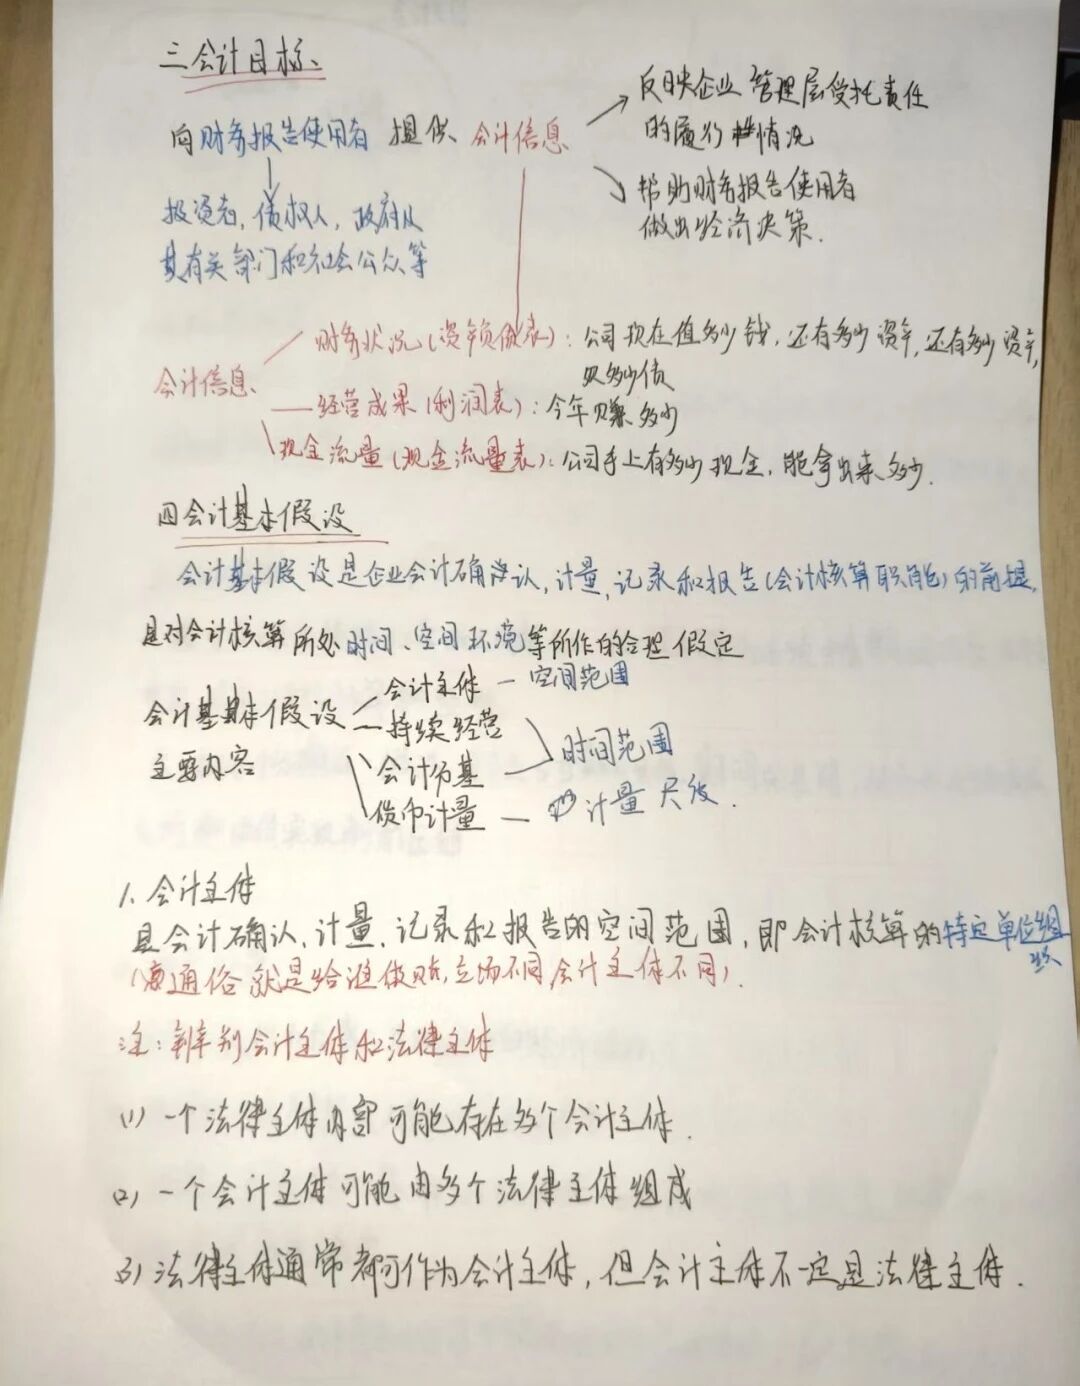 三会计目标、
向财务报告使用者 提供 会计信息
反映企业管理层受托责任
的履行情况
帮助财务报告使用者
做出经济决策.
投资者,债权人,政府及
其有关部门和社会公众等
会计信息、
财务状况(资产负债表):公司现在值多少钱,还有多少资产,还有多少资产,
欠多少债
经营成果(利润表):今年赚多少
现金流量(现金流量表):公司手上有多少现金,能拿出来多少.
四会计基本假设
会计基本假设是企业会计确认,计量,记录和报告(会计核算职能)的前提,
是对会计核算所处时间、空间环境等所作的合理假定
会计基本假设
主要内容
会计主体 — 空间范围
持续经营
会计分基
时间范围
货币计量 — 计量尺度.
1.会计主体
是会计确认,计量,记录和报告的空间范围,即会计核算的特定单位组
织
(通俗就是给谁做账,立场不同会计主体不同).
注:辩别会计主体和法律主体
(1)一个法律主体内部可能存在多个会计主体.
(2)一个会计主体可能由多个法律主体组成
(3)法律主体通常都可作为会计主体,但会计主体不一定是法律主体.